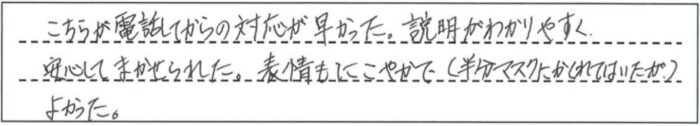 こちらが電話してからの対応が早かった。説明がわかりやすく
安心してまかせられた。表情もにこやかで(半分マスクにかくれてはいたが)
よかった。